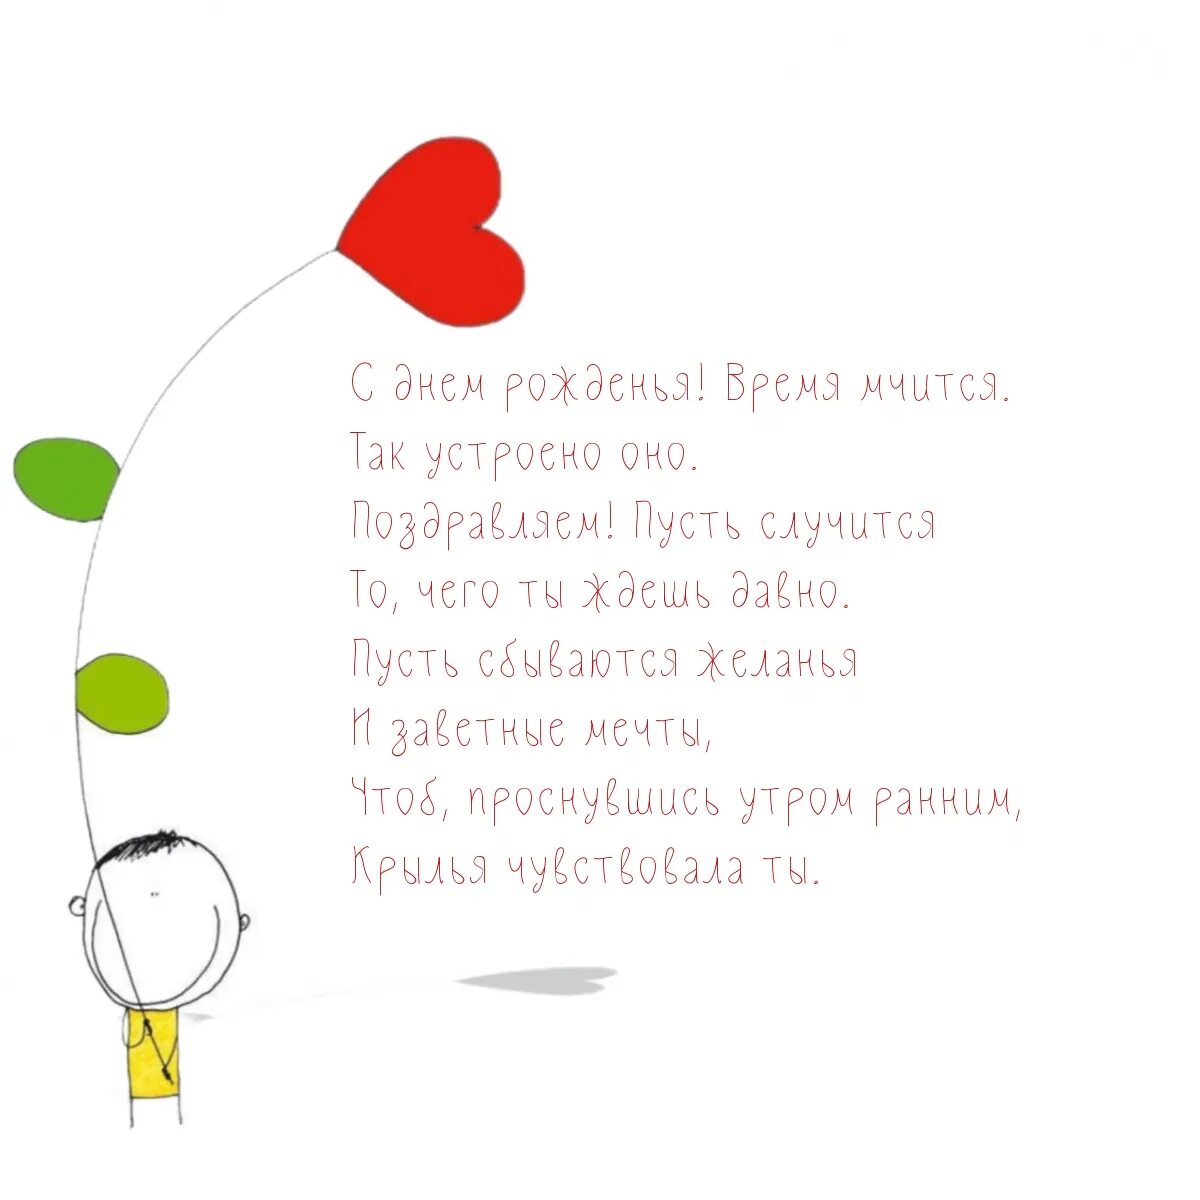 С днем рожденья! Время мчится.
Так устроено оно.
Поздравляем! Пусть случится
То, чего ты ждешь давно.
Пусть сбываются желанья
И заветные мечты,
Чтоб, проснувшись утром ранним,
Крылья чувствовала ты.